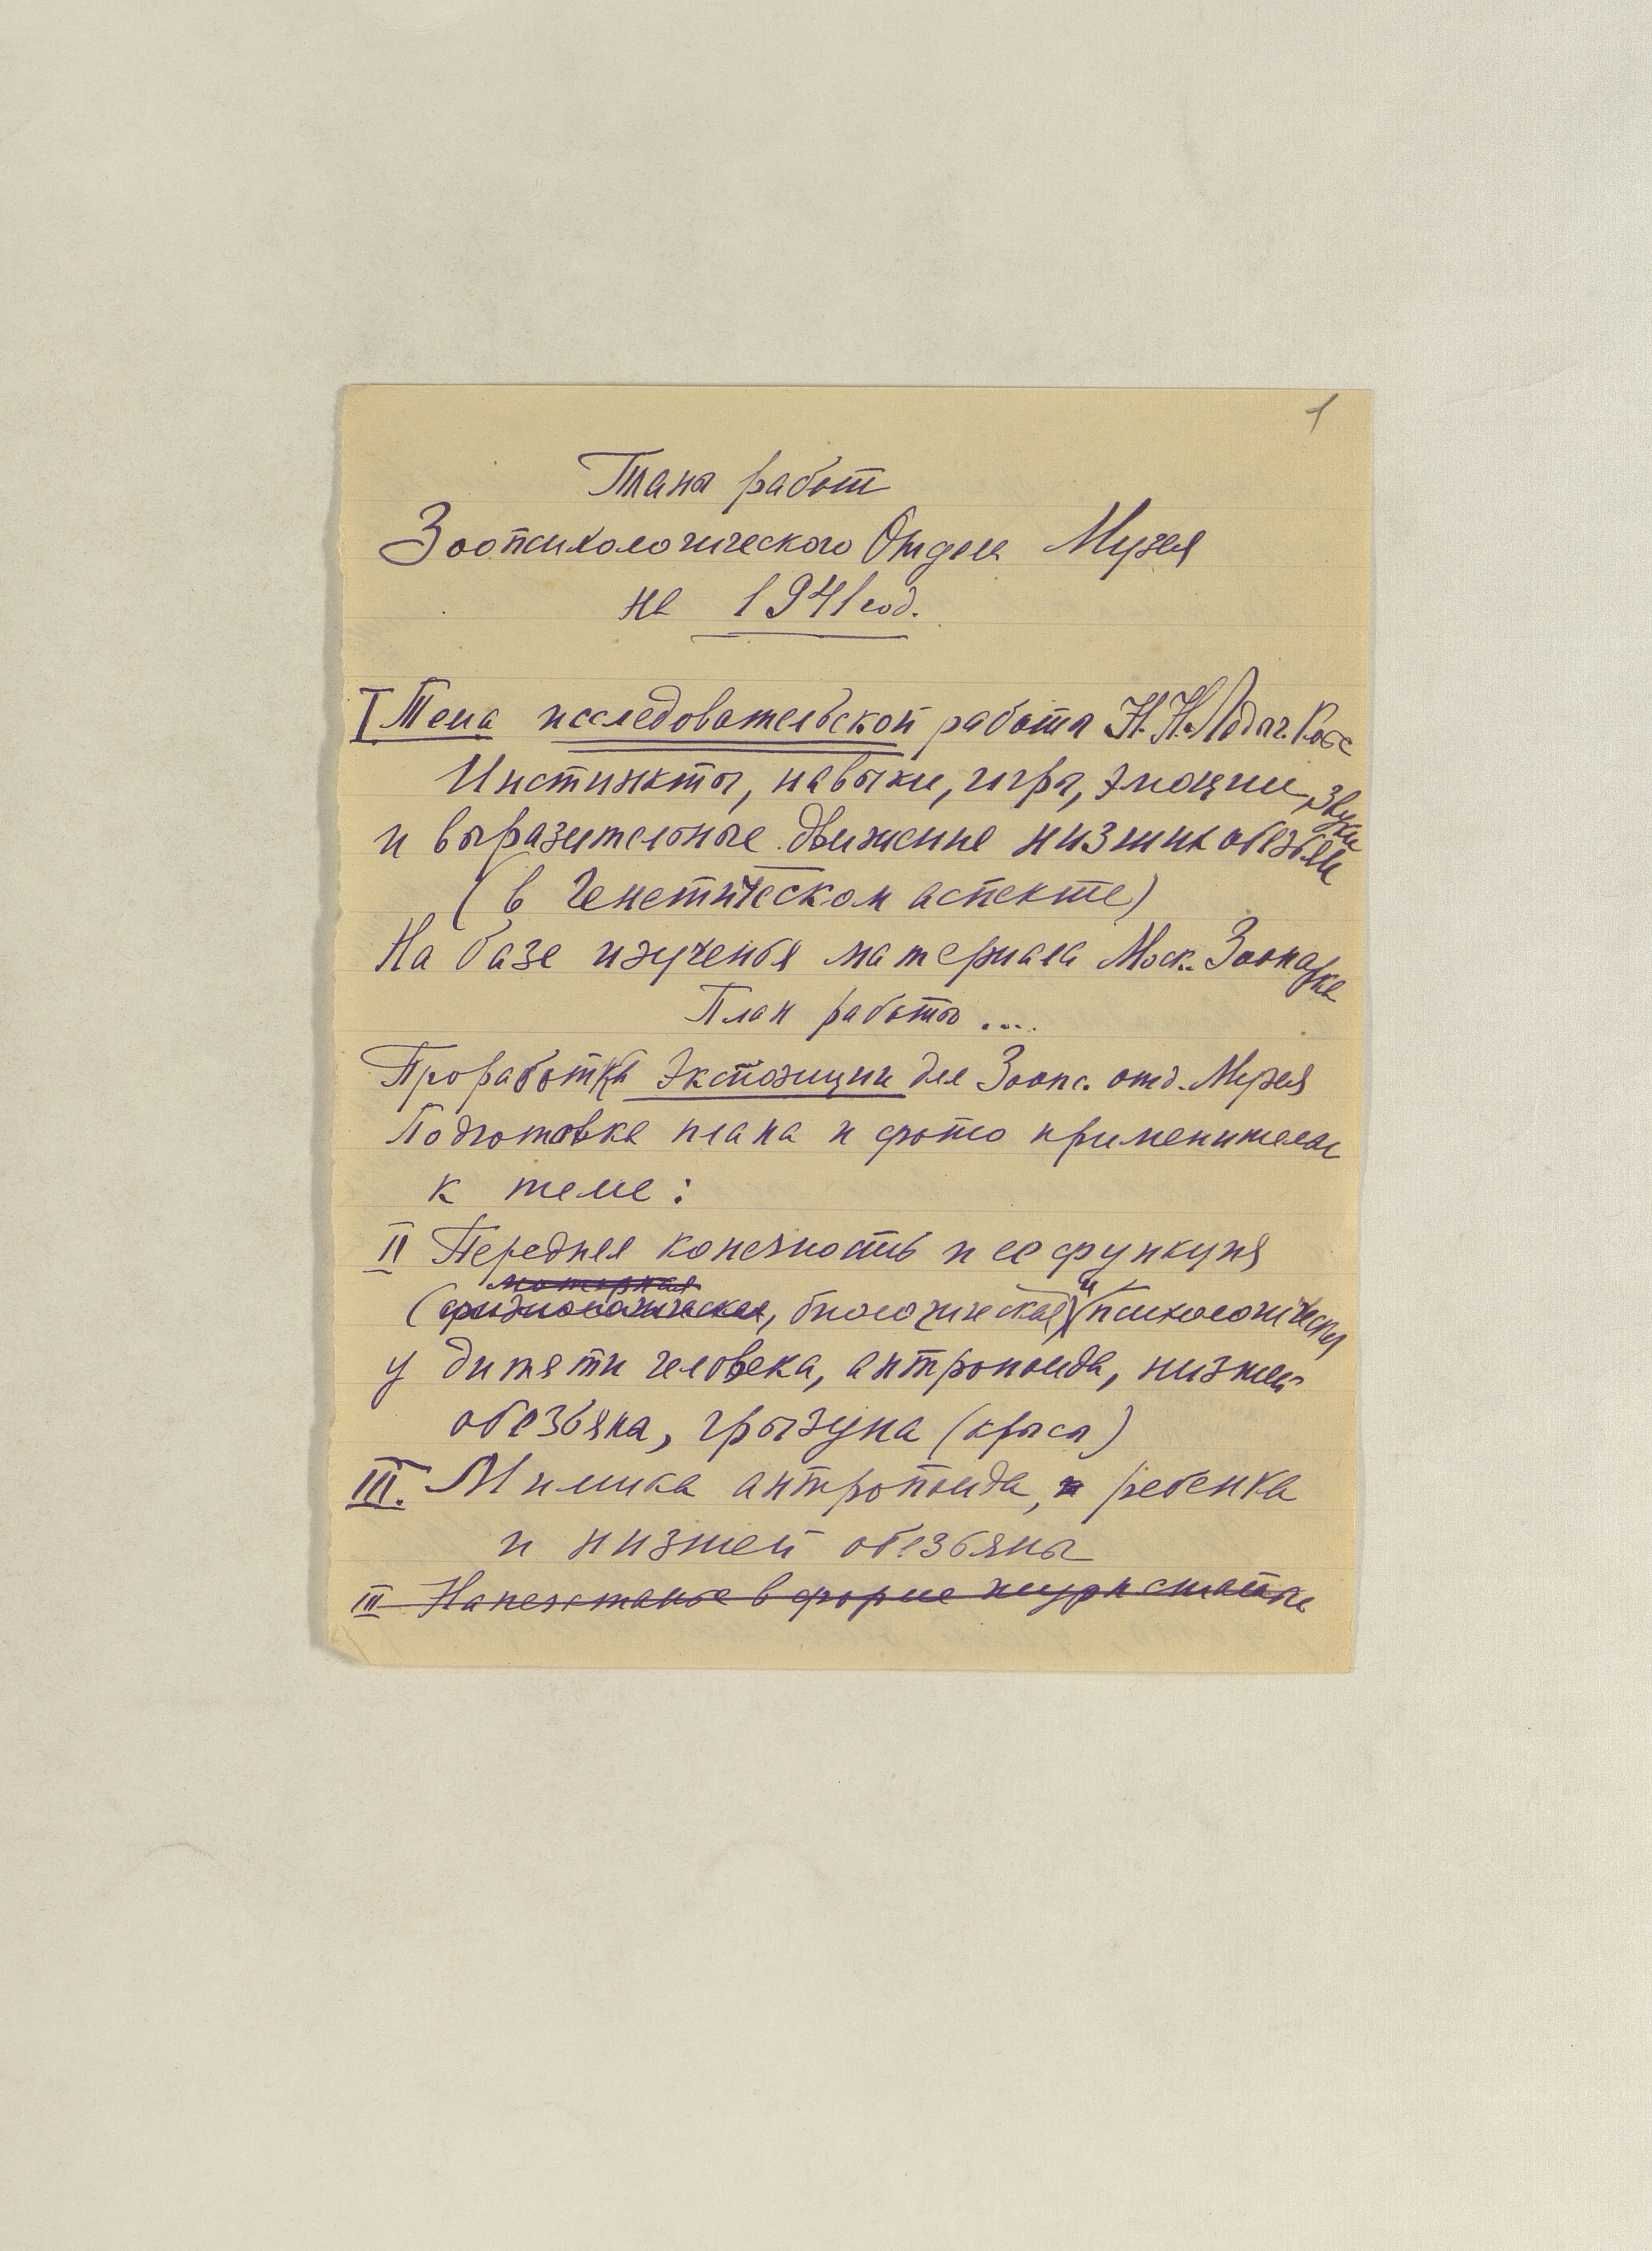 1
Планы работ
Зоопсихологического Отдела Музея
на 1941 год.
I Тема исследовательской работы Н. Н. Ладыг. Котс
Инстинкты, навыки, игры, эмоции, звуки
и выразительные движение низших обезьян
(в генетическом аспекте)
На базе изученья материала Моск. Зоопарка
План работы ....
Проработка экспозиции для Зоопс. отд. Музея
Подготовка плана и фото применительно
к теме:
II Передняя конечность и ее функция
моторная
(физиологическая, биологическая) и (психологическая
у дитяти человека, антропоида, низшей
обезьяна, грызуна (крысы)
III. Мимика антропоида, и ребенка
и низшей обезьяны
III Напечатанье в форме журн статьи